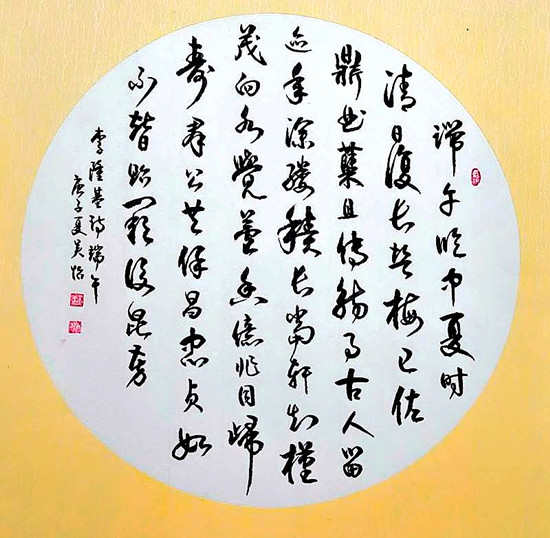 端午临中夏时
清日復长盐梅已佐
鼎曲蘖且傳觞事古人留
迹年深缕積长當轩知槿
茂向水覺芦香億兆同歸
寿群公共保昌忠贞如
不替貽厥後昆芳
李隆基诗端午
庚子夏吴怡